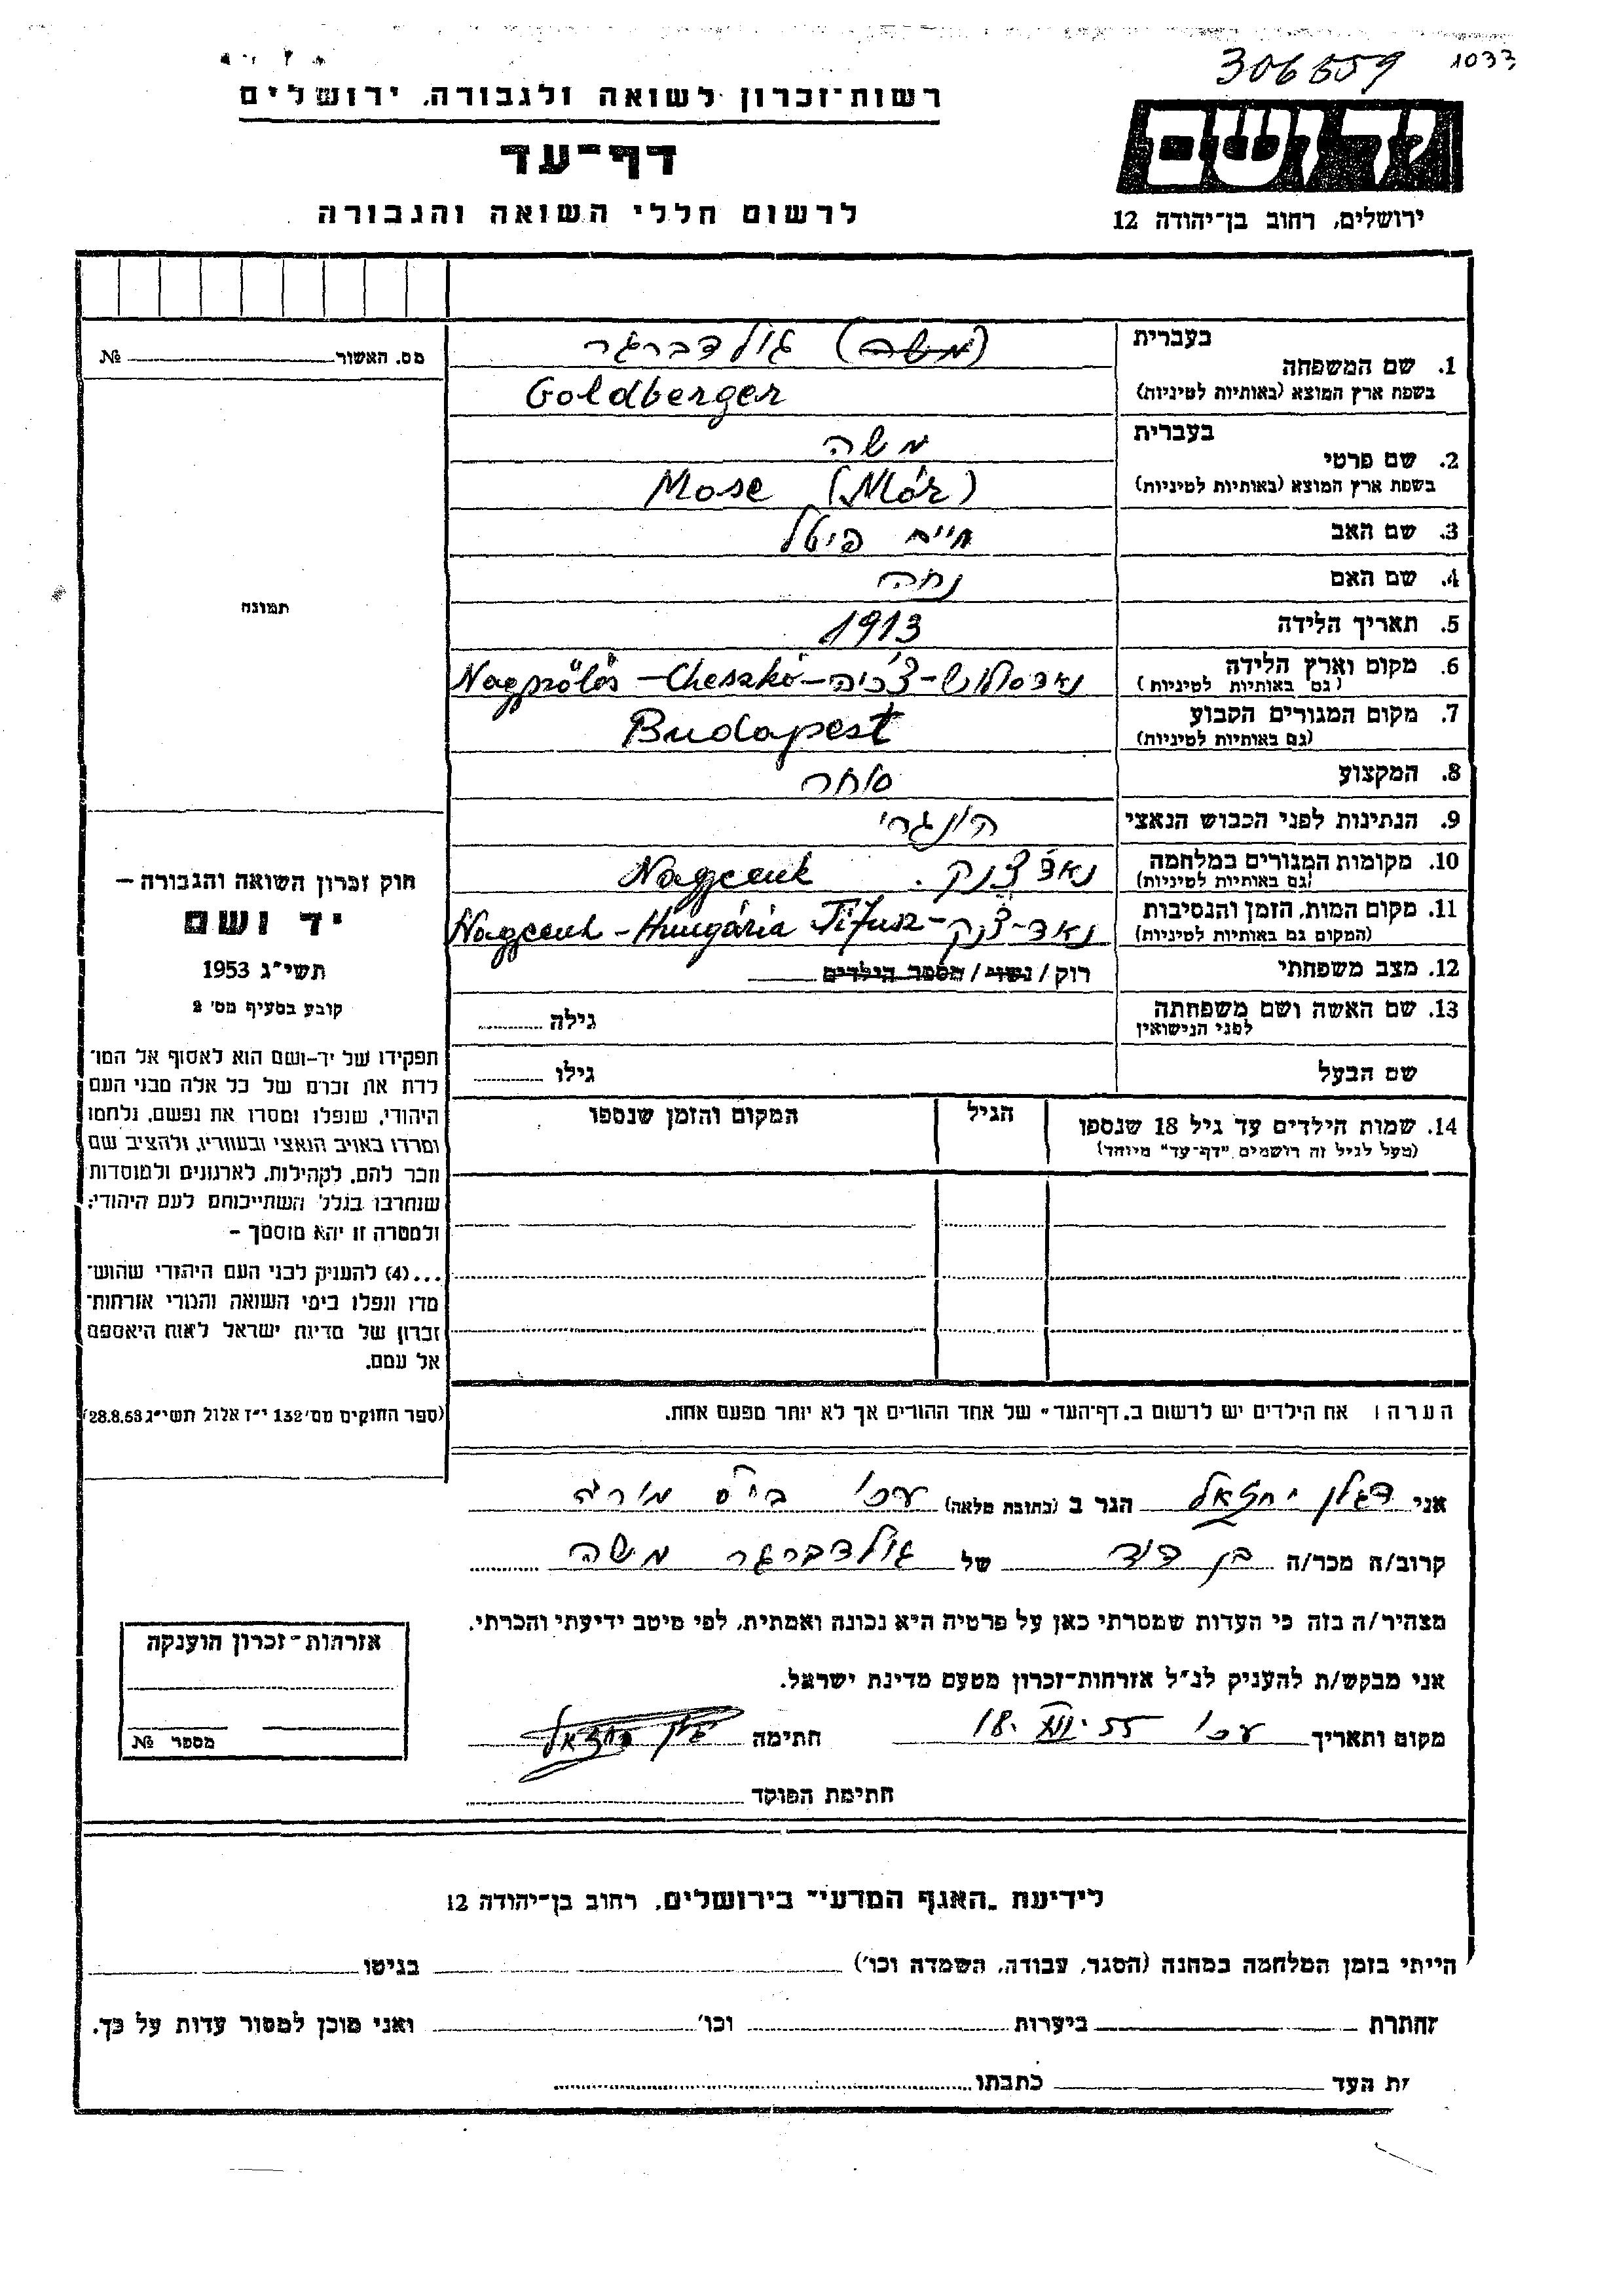 306559 1033
רשות-זכרון לשואה ולגבורה, ירושלים
דף-עד
לרשום חללי השואה והגבורה
יד ושם
ירושלים, רחוב בן-יהודה 12
מס. האשור № 
תמונה
בעברית
1. שם המשפחה
(משה) גולדברגר
בשפת ארץ המוצא (באותיות לטיניות)
Goldberger
בעברית
2. שם פרטי
משה
בשפת ארץ המוצא (באותיות לטיניות)
Mose (Mór)
3. שם האב חיים פיטל
4. שם האם נחה
5. תאריך הלידה 1913
6. מקום וארץ הלידה
(גם באותיות לטיניות)
צ'כיה - Cheszkó -
7. מקום המגורים הקבוע
(גם באותיות לטיניות)
Budapest
8. המקצוע סוחר
9. הנתינות לפני הכבוש הנאצי הונגרי
10. מקומות המגורים במלחמה
(גם באותיות לטיניות)
נאדצנק. Nagycenk
11. מקום המות, הזמן והנסיבות
(המקום גם באותיות לטיניות)
נאד-צנק - Nagycenk - Hungária Tifusz
12. מצב משפחתי רוק / נשוי / מספר הילדים
13. שם האשה ושם משפחתה
לפני הנישואין
גילה
שם הבעל גילו
14. שמות הילדים עד גיל 18 שנספו
(מעל לגיל זה רושמים "דף-עד" מיוחד)
הגיל
המקום והזמן שנספו
הערה: את הילדים יש לרשום ב„דף-העד" של אחד ההורים אך לא יותר מפעם אחת.
חוק זכרון השואה והגבורה –
יד ושם
תשי"ג 1953
קובע בסעיף מס' 2
תפקידו של יד-ושם הוא לאסוף אל המו-
לדת את זכרם של כל אלה מבני העם
היהודי, שנפלו ומסרו את נפשם, נלחמו
ומרדו באויב הנאצי ובעוזריו, ולהציב שם
וזכר להם, לקהילות, לארגונים ולמוסדות
שנחרבו בגלל השתייכותם לעם היהודי;
ולמטרה זו יהא מוסמך –
...(4) להעניק לבני העם היהודי שהוש-
מדו ונפלו בימי השואה והמרי אזרחות-
זכרון של מדינת ישראל לאות היאספם
אל עמם.
(ספר החוקים מס' 132 י"ז אלול תשי"ג 28.8.53)
אני דגלן יחזקאל הגר ב (כתובת מלאה) עכו בי"ס מוריה
קרוב/ה מכר/ה בן דוד של גולדברגר משה
מצהיר/ה בזה כי העדות שמסרתי כאן על פרטיה היא נכונה ואמתית, לפי מיטב ידיעתי והכרתי.
אני מבקש/ת להעניק לנ"ל אזרחות-זכרון מטעם מדינת ישראל.
מקום ותאריך עכו 18. VIII. 55 חתימה
חתימת הפוקד
אזרחות-זכרון הוענקה
מספר №
לידיעת „האגף המדעי" בירושלים, רחוב בן-יהודה 12
הייתי בזמן המלחמה במחנה (הסגר, עבודה, השמדה וכו') בגיטו
במחתרת ביערות וכו' ואני מוכן למסור עדות על כך.
העד כתבתו